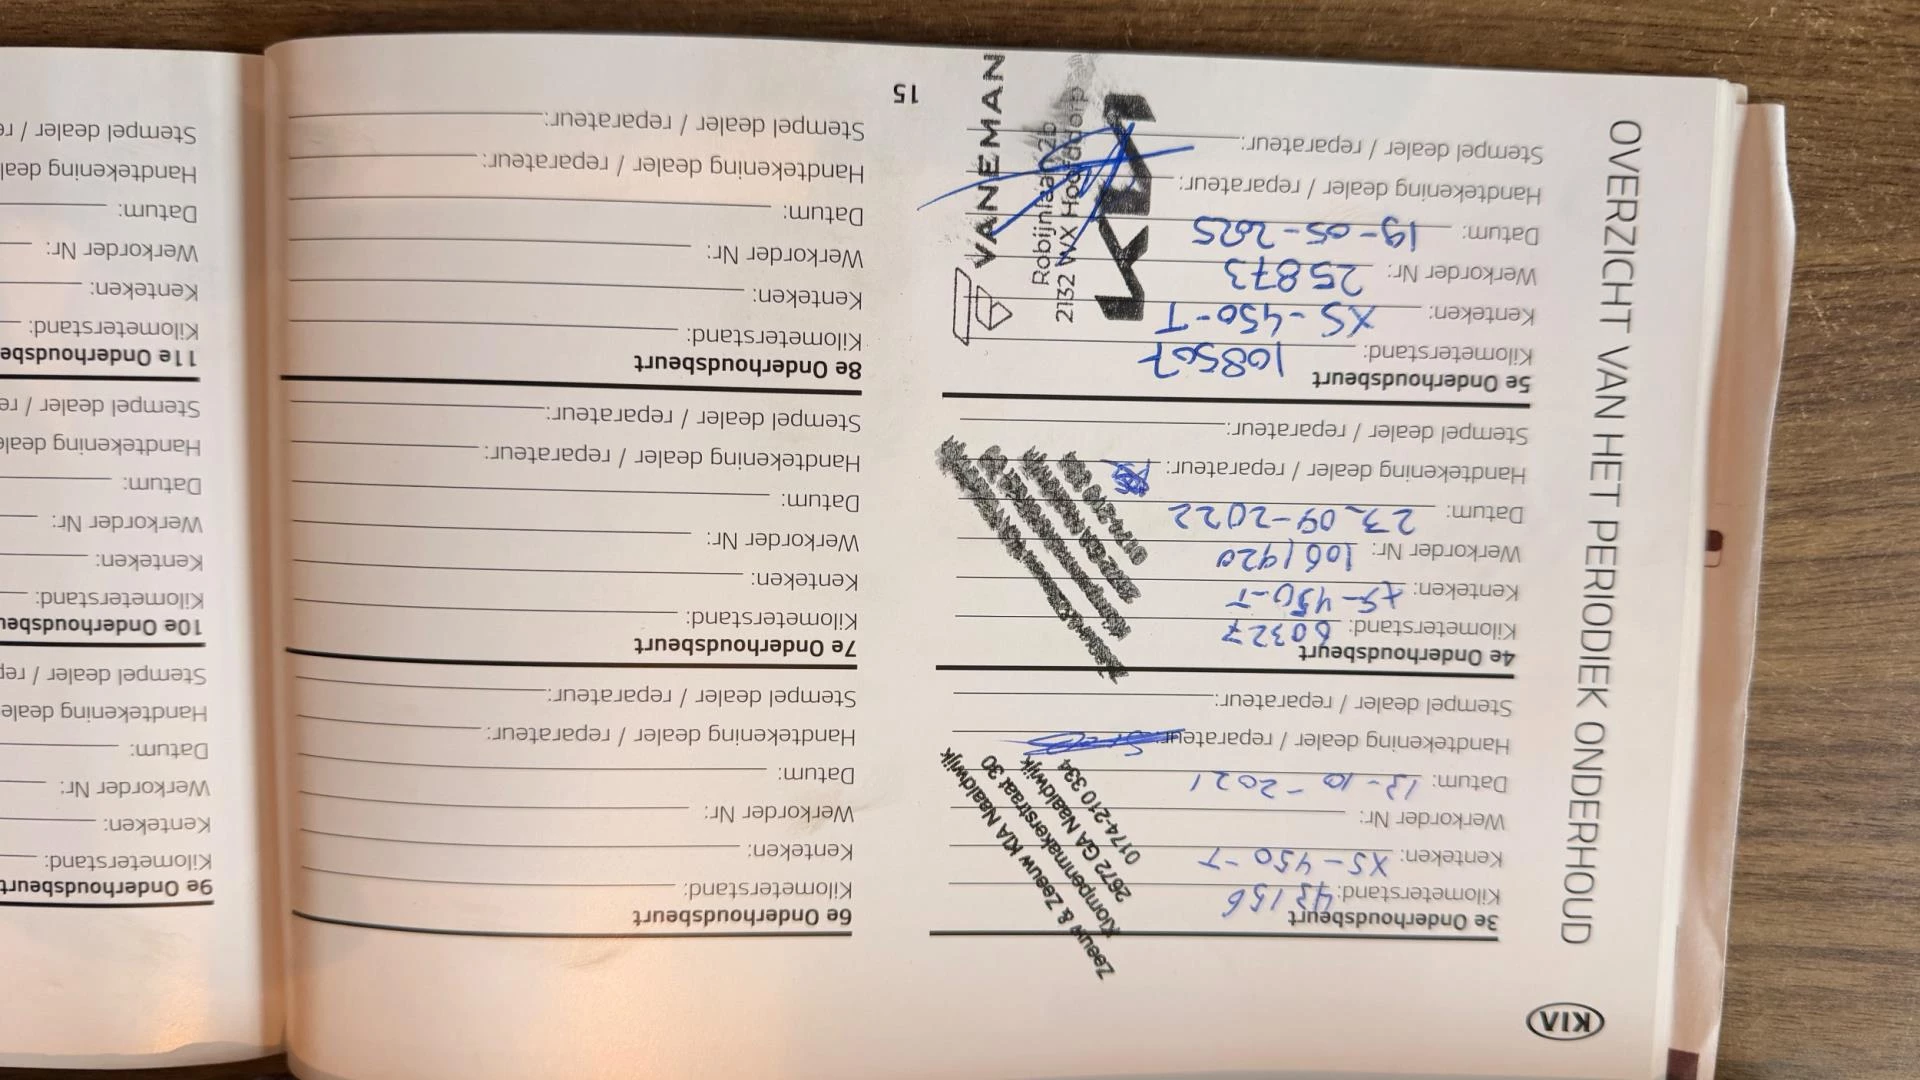 KIA
OVERZICHT VAN HET PERIODIEK ONDERHOUD
3e Onderhoudsbeurt
Kilometerstand: 43156
Kenteken: XS-450-T
Werkorder Nr:
Datum: 13-10-2021
Handtekening dealer / reparateur:
Stempel dealer / reparateur:
Zeeuw & Zeeuw KIA Naaldwijk
Klompenmakerstraat 30
2672 GA Naaldwijk
0174-210 334
4e Onderhoudsbeurt
Kilometerstand: 60327
Kenteken: XS-450-T
Werkorder Nr: 1061920
Datum: 23-09-2022
Handtekening dealer / reparateur:
Stempel dealer / reparateur:
5e Onderhoudsbeurt
Kilometerstand: 108507
Kenteken: XS-450-T
Werkorder Nr: 25873
Datum: 19-05-2025
Handtekening dealer / reparateur:
Stempel dealer / reparateur:
KIA
VANEMAN
Robijnlaan 2b
2132 WX Hoofddorp
15
6e Onderhoudsbeurt
Kilometerstand:
Kenteken:
Werkorder Nr:
Datum:
Handtekening dealer / reparateur:
Stempel dealer / reparateur:
7e Onderhoudsbeurt
Kilometerstand:
Kenteken:
Werkorder Nr:
Datum:
Handtekening dealer / reparateur:
Stempel dealer / reparateur:
8e Onderhoudsbeurt
Kilometerstand:
Kenteken:
Werkorder Nr:
Datum:
Handtekening dealer / reparateur:
Stempel dealer / reparateur:
9e Onderhoudsbeurt
Kilometerstand:
Kenteken:
Werkorder Nr:
Datum:
Handtekening deale
Stempel dealer / rep
10e Onderhoudsbeu
Kilometerstand:
Kenteken:
Werkorder Nr:
Datum:
Handtekening deale
Stempel dealer / re
11e Onderhoudsbe
Kilometerstand:
Kenteken:
Werkorder Nr:
Datum:
Handtekening deal
Stempel dealer / re